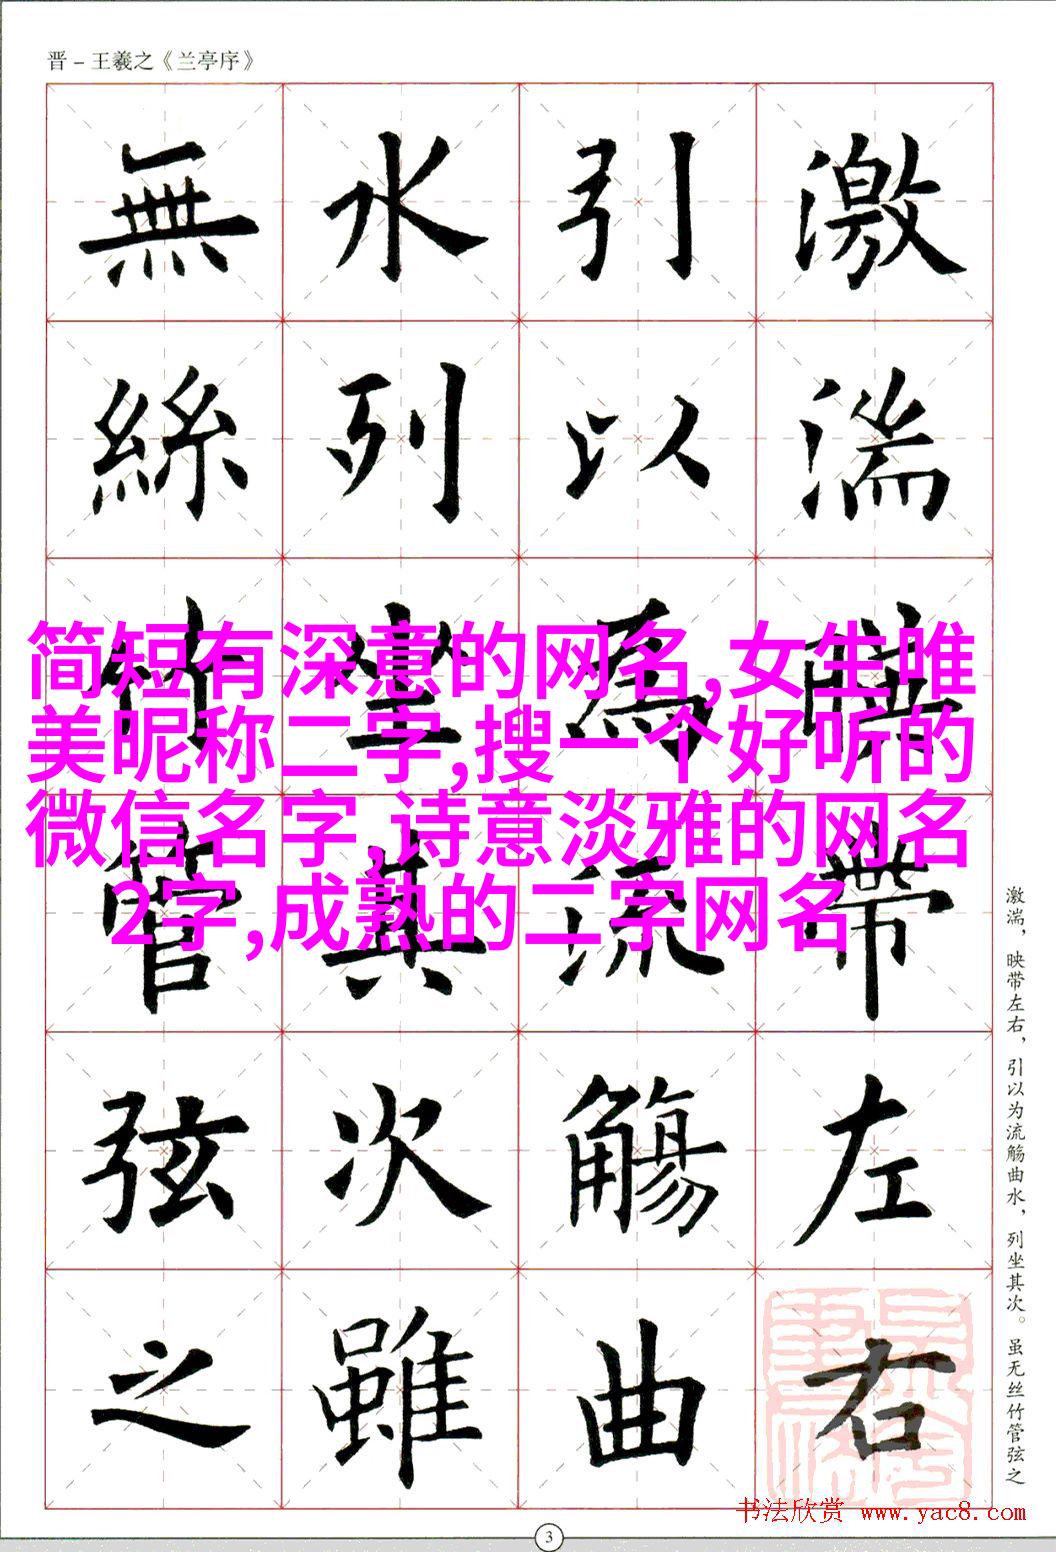 晋－王羲之《兰亭序》
激湍映带左右
引以为流觞曲
水列坐其次雖
無絲竹管弦之
简短有深意的网名,女生唯
美昵称二字,搜一个好听的
微信名字,诗意淡雅的网名
2字,成熟的二字网名
激湍，映带左右，引以为流觞曲水，列坐其次。虽无丝竹管弦之
书法欣赏 www.yac8.com
3